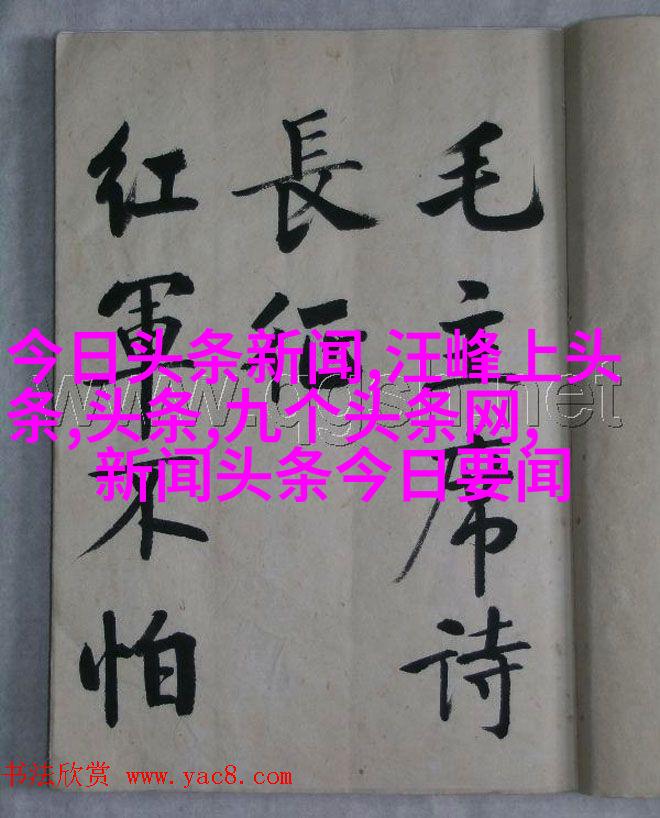 毛主席诗
長征
红軍不怕
今日头条新闻,汪峰上头
条,头条,九个头条网,
新闻头条今日要闻
书法欣赏 www.yac8.com